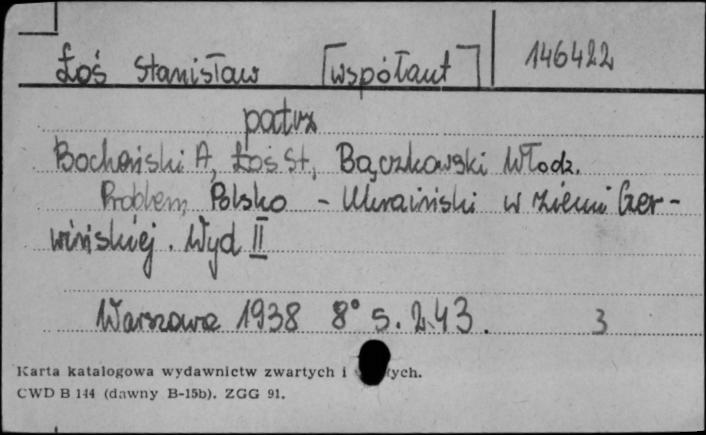 Łoś Stanisław [współaut] 146422
patrz
Bocheński A, Łoś St., Bączkowski Włodz.
Problem Polsko - Ukraiński w ziemi Czer-
wińskiej. Wyd II
Warszawa 1938 8° s. 243. 3
Karta katalogowa wydawnictw zwartych i
CWD B 144 (dawny B-15b). ZGG 91.